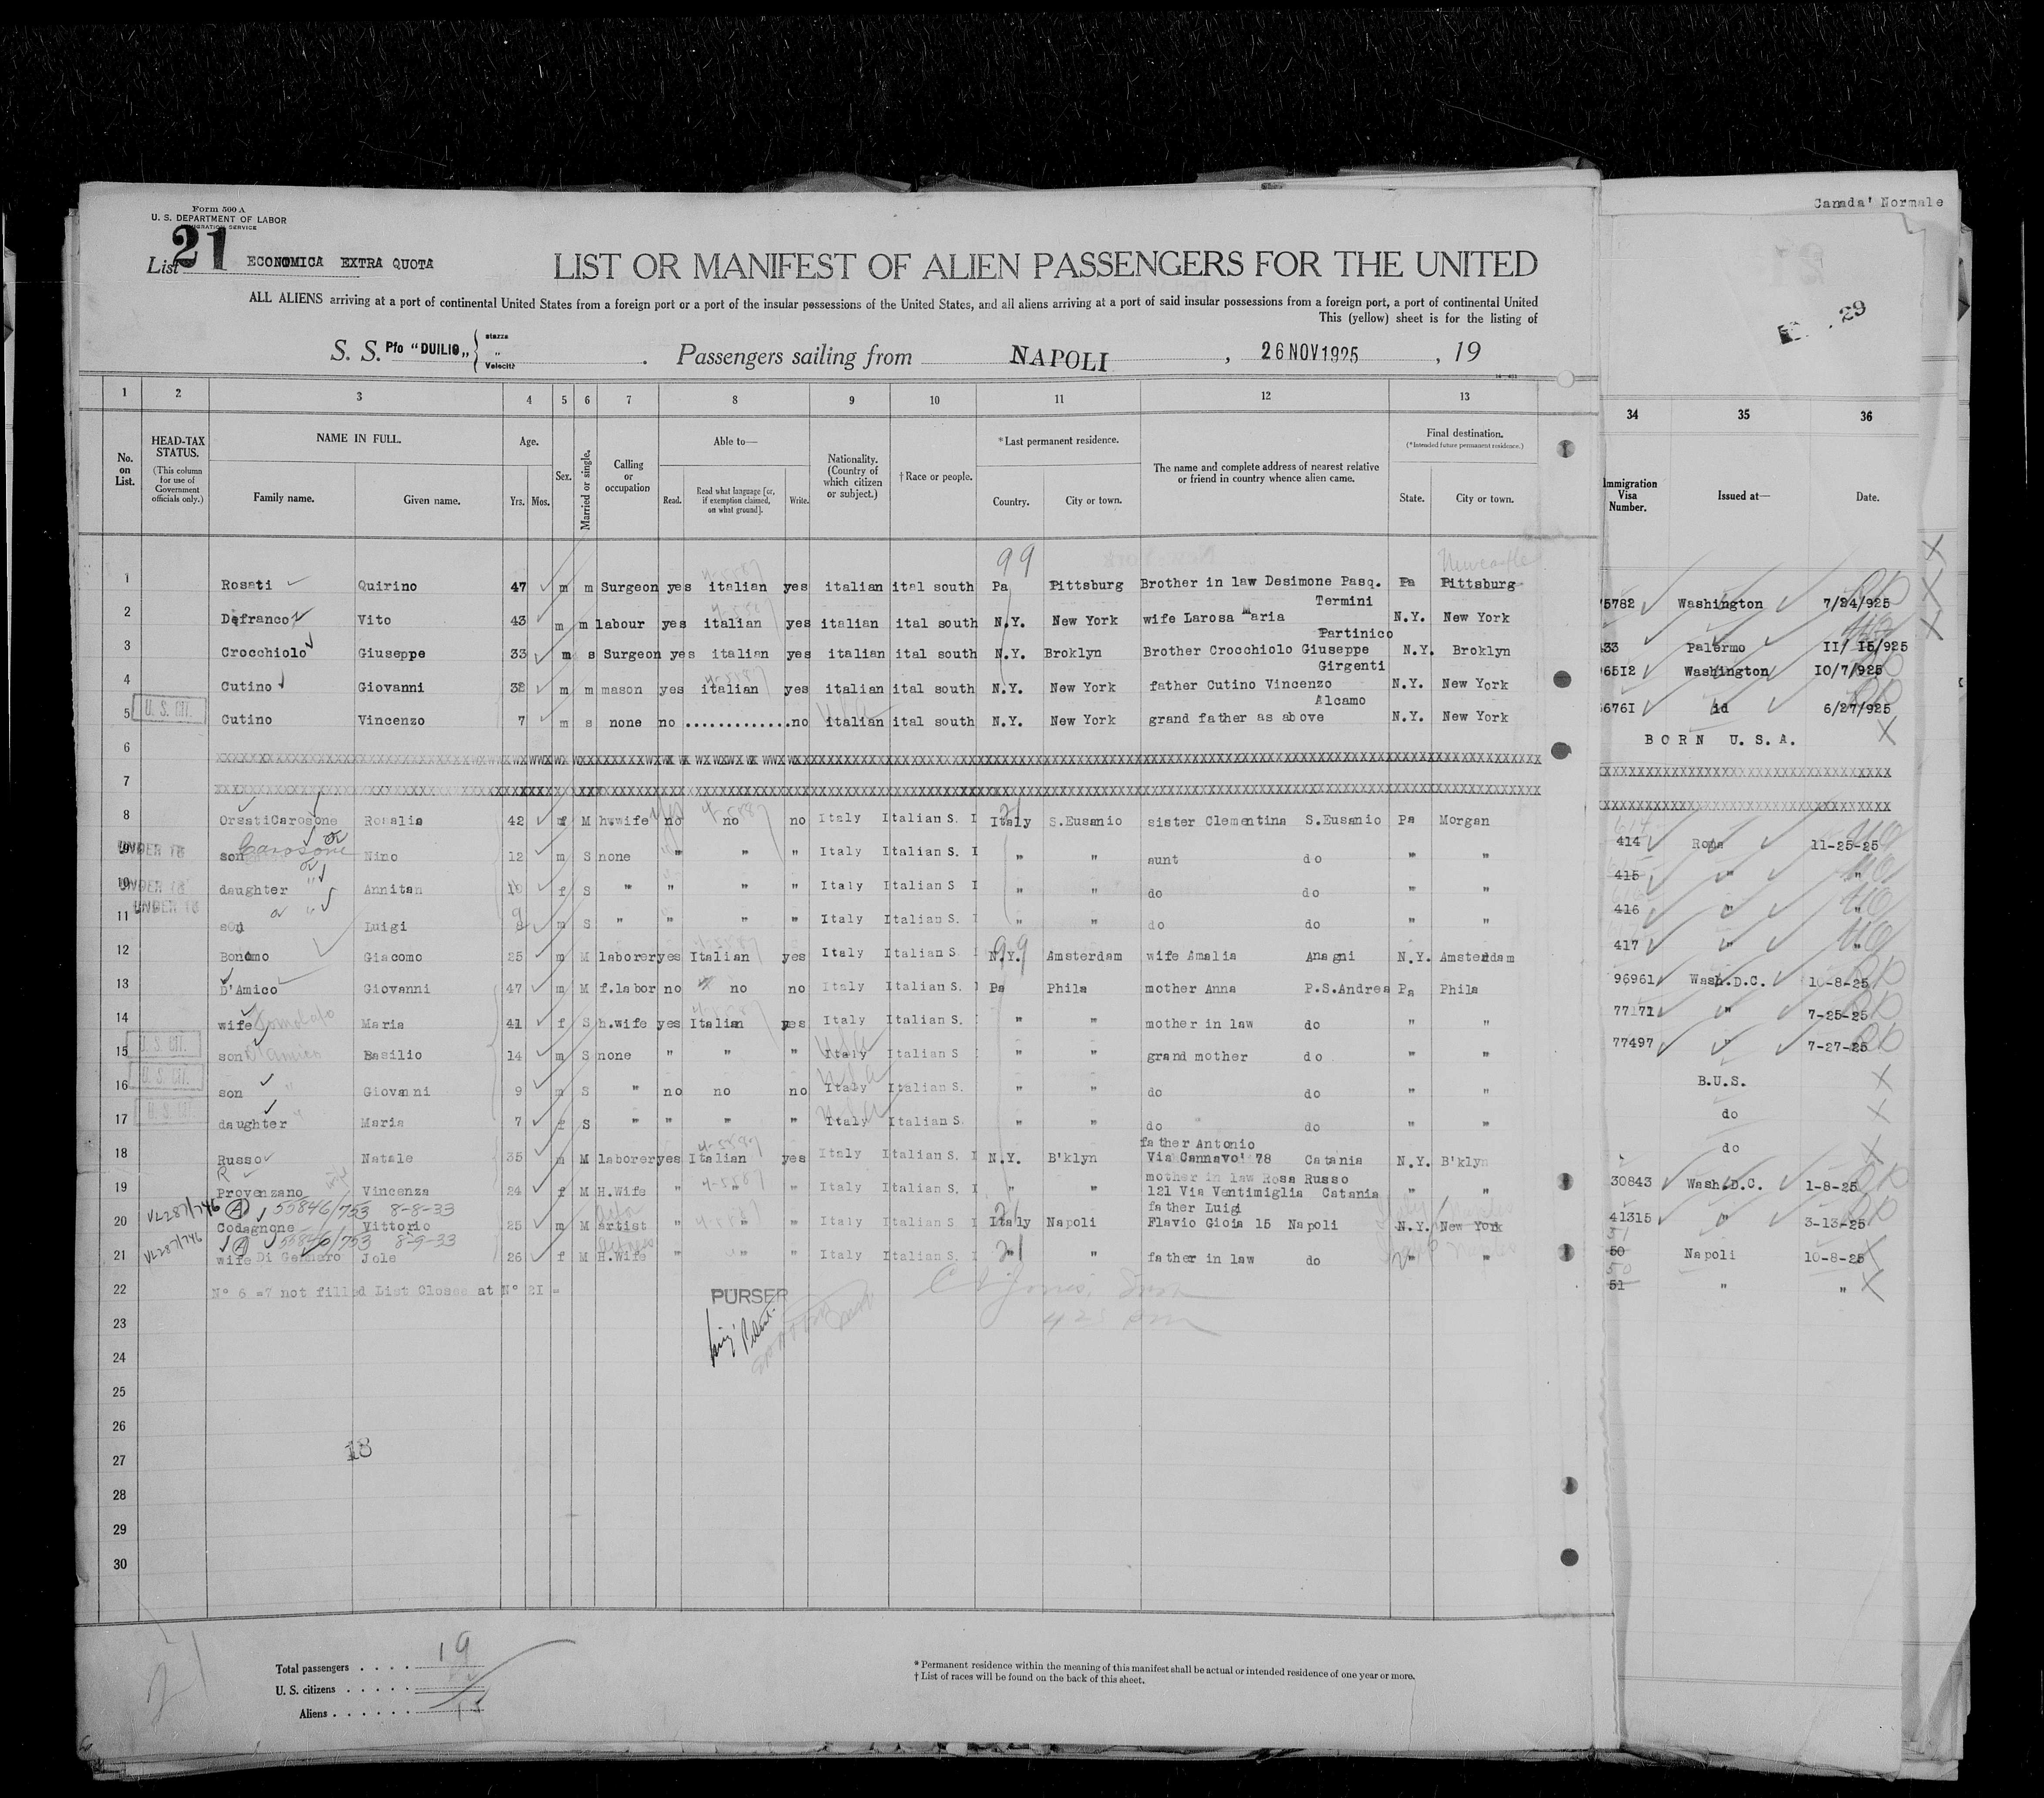 Canada' Normale
Form 500 A
U. S. DEPARTMENT OF LABOR
IMMIGRATION SERVICE
List 21 ECONOMICA EXTRA QUOTA
LIST OR MANIFEST OF ALIEN PASSENGERS FOR THE UNITED
ALL ALIENS arriving at a port of continental United States from a foreign port or a port of the insular possessions of the United States, and all aliens arriving at a port of said insular possessions from a foreign port, a port of continental United
This (yellow) sheet is for the listing of
29
S. S. Pfo "DUILIO„ stazza „ Velocità . Passengers sailing from NAPOLI , 26 NOV 1925 , 19
1 2 3 4 5 6 7 8 9 10 11 12 13 34 35 36
No. on List. HEAD-TAX STATUS. (This column for use of Government officials only.) NAME IN FULL. Age. Sex. Married or single. Calling or occupation Able to— Nationality. (Country of which citizen or subject.) †Race or people. *Last permanent residence. The name and complete address of nearest relative or friend in country whence alien came. Final destination. (*Intended future permanent residence.) Immigration Visa Number. Issued at— Date.
Family name. Given name. Yrs. Mos. Read. Read what language [or, if exemption claimed, on what ground]. Write. Country. City or town. State. City or town.
99 Newcastle
1 Rosati Quirino 47 m m Surgeon yes italian yes italian ital south Pa Pittsburg Brother in law Desimone Pasq. Termini Pa Pittsburg 5782 Washington 7/24/925
2 Defranco Vito 43 m m labour yes italian yes italian ital south N.Y. New York wife Larosa Maria Partinico N.Y. New York 33 Palermo II/ I5/925
3 Crocchiolo Giuseppe 33 m s Surgeon yes italian yes italian ital south N.Y. Broklyn Brother Crocchiolo Giuseppe Girgenti N.Y. Broklyn 65I2 Washington IO/7/925
4 Cutino Giovanni 38 m m mason yes italian yes italian ital south N.Y. New York father Cutino Vincenzo Alcamo N.Y. New York 676I id 6/27/925
5 U. S. CIT. Cutino Vincenzo 7 m s none no .............no italian ital south N.Y. New York grand father as above N.Y. New York BORN U.S.A.
6
7
8 OrsatiCarosone Rosalia 42 f M h.wife no no no Italy Italian S. Italy S.Eusanio sister Clementina S.Eusanio Pa Morgan 414 Roma 11-25-25
9 UNDER 16 son Carosone or Nino 12 m S none " " " Italy Italian S. " " aunt do " " 415 " "
10 UNDER 16 daughter or " Annitan 10 f S " " " " Italy Italian S " " do do " " 416 " "
11 UNDER 16 son or " Luigi 8 m S " " " " Italy Italian S. " " do do " " 417 " "
12 Bonomo Giacomo 25 m M laborer yes Italian yes Italy Italian S. N.Y. Amsterdam wife Amalia Anagni N.Y. Amsterdam 96961 Wash.D.C. 10-8-25
13 D'Amico Giovanni 47 m M f.labor no no no Italy Italian S. Pa Phila mother Anna P.S.Andrea Pa Phila 77171 " 7-25-25
14 wife Maria 41 f S h.wife yes Italian yes Italy Italian S. " " mother in law do " " 77497 " 7-27-25
15 U. S. CIT. son D'Amico Basilio 14 m S none " " " Italy Italian S " " grand mother do " " B.U.S.
16 U. S. CIT. son " Giovanni 9 m S " no no no Italy Italian S. " " do do " " do
17 U. S. CIT. daughter " Maria 7 f S " " " " Italy Italian S. " " do do " " do
18 Russo Natale 35 m M laborer yes Italian yes Italy Italian S. N.Y. B'klyn father Antonio Via Cannavo' 78 Catania N.Y. B'klyn 30843 Wash.D.C. 1-8-25
19 Provenzano Vincenza 24 f M H.Wife " " " Italy Italian S. " " mother in law Rosa Russo 121 Via Ventimiglia Catania " " 41315 " 3-13-25
VL287/746 (A) 55846/753 8-8-33
20 Codagnone Vittorio 25 m M artist " " " Italy Italian S Italy Napoli father Luigi Flavio Gioia 15 Napoli N.Y. New York 50 51 Napoli 10-8-25
VL287/746 (A) 55846/753 8-9-33
21 wife Di Gennaro Jole 26 f M H.Wife Actress " " " Italy Italian S. " " father in law do " " 51 50 " "
22 N° 6 =7 not filled List Closes at N° 2I =
PURSER
23
24
25
26
27
18
28
29
30
21
Total passengers . . . . 19
U. S. citizens . . . . .
Aliens . . . . . . 15
* Permanent residence within the meaning of this manifest shall be actual or intended residence of one year or more.
† List of races will be found on the back of this sheet.